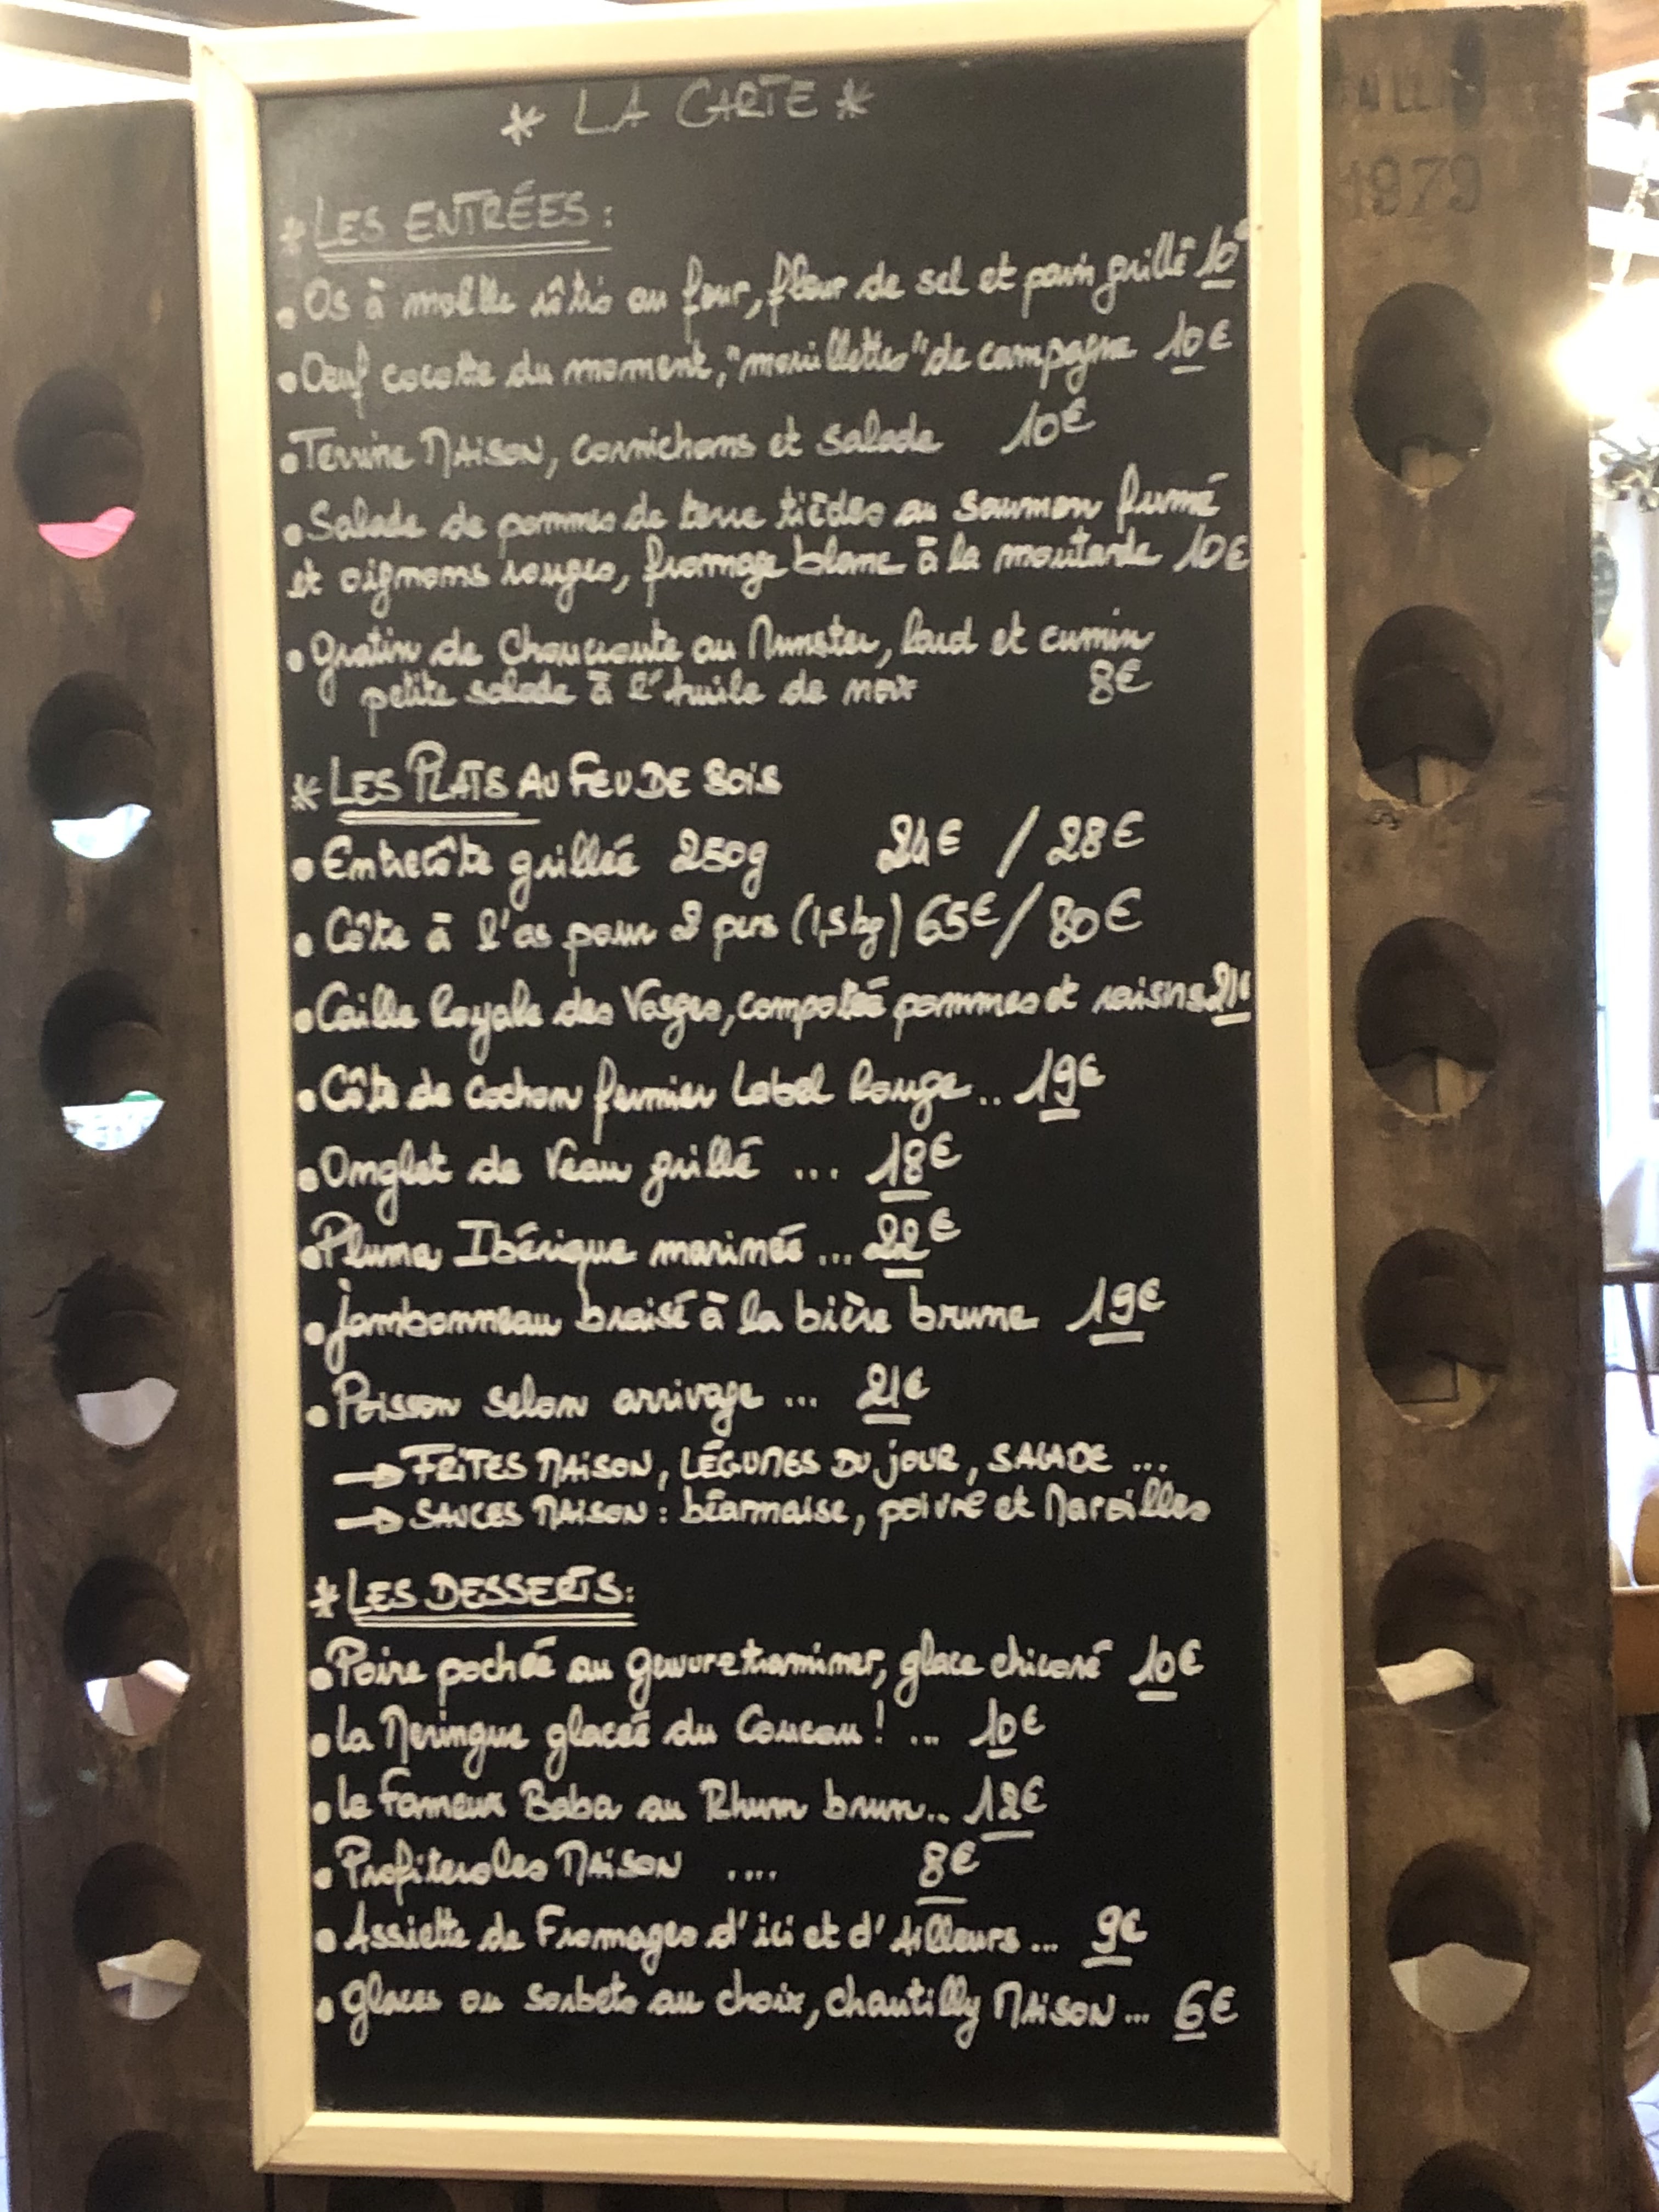 * LA CARTE *
* LES ENTRÉES :
• Os à moelle rôtis au four, fleur de sel et pain grillé 10€
• Oeuf cocotte du moment, "mouillettes" de campagne 10€
• Terrine MAISON, cornichons et salade 10€
• Salade de pommes de terre tièdes au saumon fumé
et oignons rouges, fromage blanc à la moutarde 10€
• Gratin de Choucroute au Munster, lard et cumin
petite salade à l'huile de noix 8€
* LES PLATS AU FEU DE BOIS
• Entrecôte grillée 250g 24€ / 28€
• Côte à l'os pour 2 pers (1,5kg) 65€ / 80€
• Caille Royale des Vosges, compotée pommes et raisins 21€
• Côte de cochon fermier Label Rouge .. 19€
• Onglet de Veau grillé ... 18€
• Pluma Ibérique marinée ... 22€
• Jambonneau braisé à la bière brune 19€
• Poisson selon arrivage ... 21€
→ FRITES MAISON, LÉGUMES DU JOUR, SALADE ...
→ SAUCES MAISON : béarnaise, poivre et Maroilles
* LES DESSERTS :
• Poire pochée au gewurztraminer, glace chicoré 10€
• La Meringue glacée du Coucou ! ... 10€
• Le Fameux Baba au Rhum brun .. 12€
• Profiteroles MAISON .... 8€
• Assiette de Fromages d'ici et d'Ailleurs ... 9€
• Glaces ou sorbets au choix, chantilly MAISON ... 6€
1979